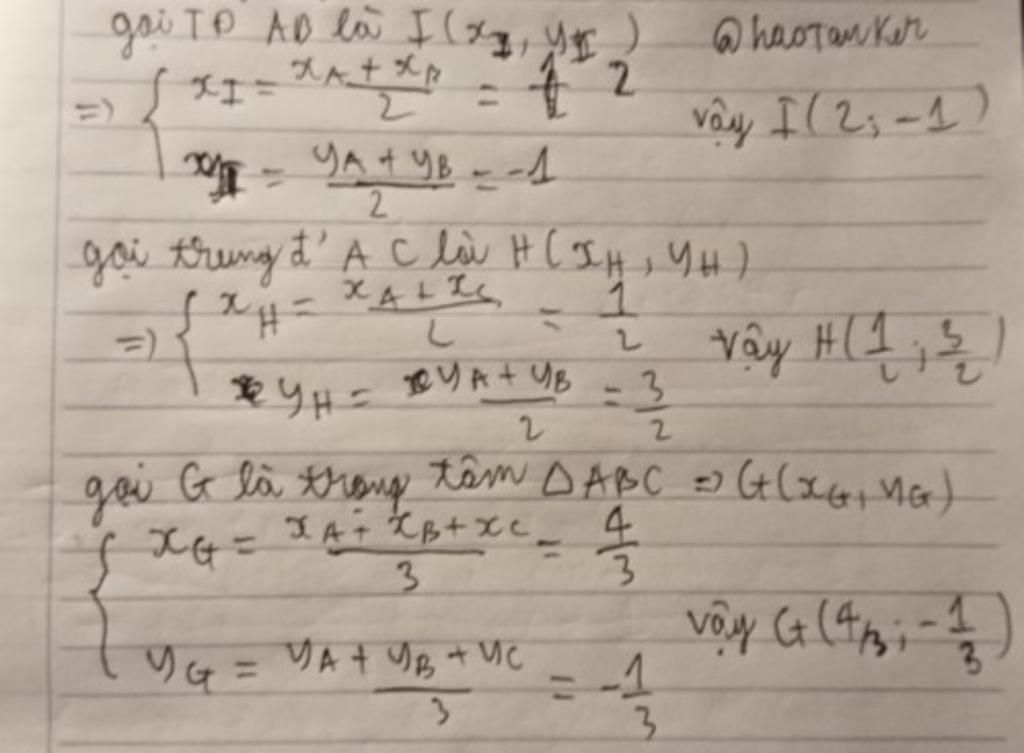 gọi TĐ AB là I(x_I, y_I) @haoTanker
=> { x_I = (x_A + x_B)/2 = 2
y_I = (y_A + y_B)/2 = -1
vậy I(2; -1)
gọi trung đ' AC là H(x_H, y_H)
=> { x_H = (x_A + x_C)/2 = 1/2
y_H = (y_A + y_B)/2 = 3/2
vậy H(1/2; 3/2)
gọi G là trọng tâm △ABC => G(x_G, y_G)
{ x_G = (x_A + x_B + x_C)/3 = 4/3
y_G = (y_A + y_B + y_C)/3 = -1/3
vậy G(4/3; -1/3)